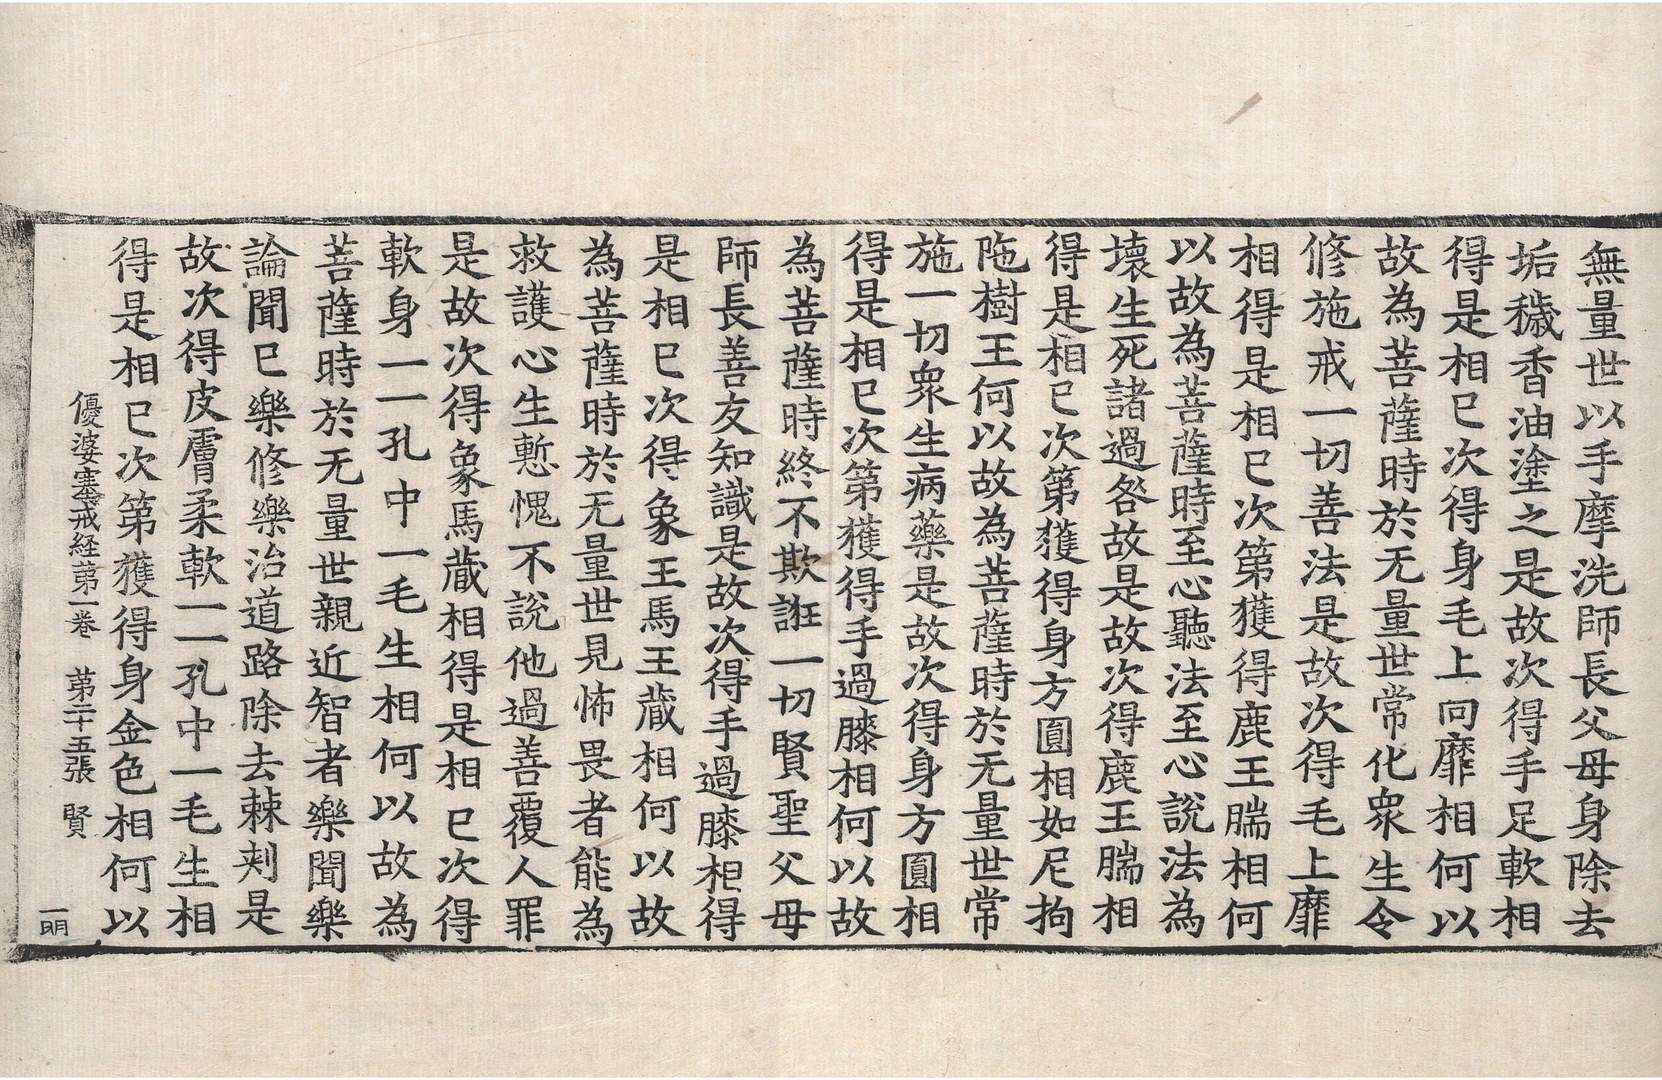 無量世以手摩洗師長父母身除去
垢穢香油塗之是故次得手足軟相
得是相已次得身毛上向靡相何以
故為菩薩時於无量世常化衆生令
修施戒一切善法是故次得毛上靡
相得是相已次第獲得鹿王腨相何
以故為菩薩時至心聽法至心說法為
壞生死諸過咎故是故次得鹿王腨相
得是相已次第獲得身方圓相如尼拘
陁樹王何以故為菩薩時於无量世常
施一切衆生病藥是故次得身方圓相
得是相已次第獲得手過膝相何以故
為菩薩時終不欺誑一切賢聖父母
師長善友知識是故次得手過膝相得
是相已次得象王馬王藏相何以故
為菩薩時於无量世見怖畏者能為
救護心生慙愧不說他過善覆人罪
是故次得象馬藏相得是相已次得
軟身一一孔中一毛生相何以故為
菩薩時於无量世親近智者樂聞樂
論聞已樂修樂治道路除去棘刺是
故次得皮膚柔軟一一孔中一毛生相
得是相已次第獲得身金色相何以
優婆塞戒経第一卷 第二十五張 賢
一明